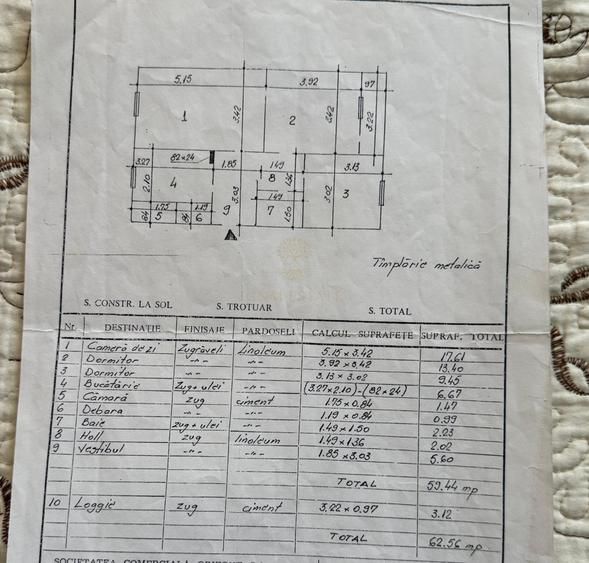 5.15 3.92 97
1 3.42 2 3.42 3.22
3.27 82×24 1.85 1.49 3.13
2.10 4 8 1.36
3.03 1.49 3.02 3
1.75 1.19
84 5 84 6 9 7 1.50
Tîmplărie metalică
S. CONSTR. LA SOL S. TROTUAR S. TOTAL
Nr. DESTINAȚIE FINISAJE PARDOSELI CALCUL SUPRAFEȚE SUPRAF. TOTAL
1 Cameră de zi Zugrăveli Linoleum 5.15 × 3.42 17.61
2 Dormitor -"- -"- 3.92 × 3.42 13.40
3 Dormitor -"- -"- 3.13 × 3.02 9.45
4 Bucătărie Zug+ulei -"- (3.27×2.10)-(82×24) 6.67
5 Cămară zug ciment 1.75 × 0.84 1.47
6 Debara -"- -"- 1.19 × 0.84 0.99
7 Baie zug+ulei -"- 1.49 × 1.50 2.23
8 Holl zug linoleum 1.49 × 1.36 2.02
9 Vestibul -"- -"- 1.85 × 3.03 5.60
TOTAL 59.44 mp
10 Loggie zug ciment 3.22 × 0.97 3.12
TOTAL 62.56 mp
SOCIETATEA COMERCIALĂ